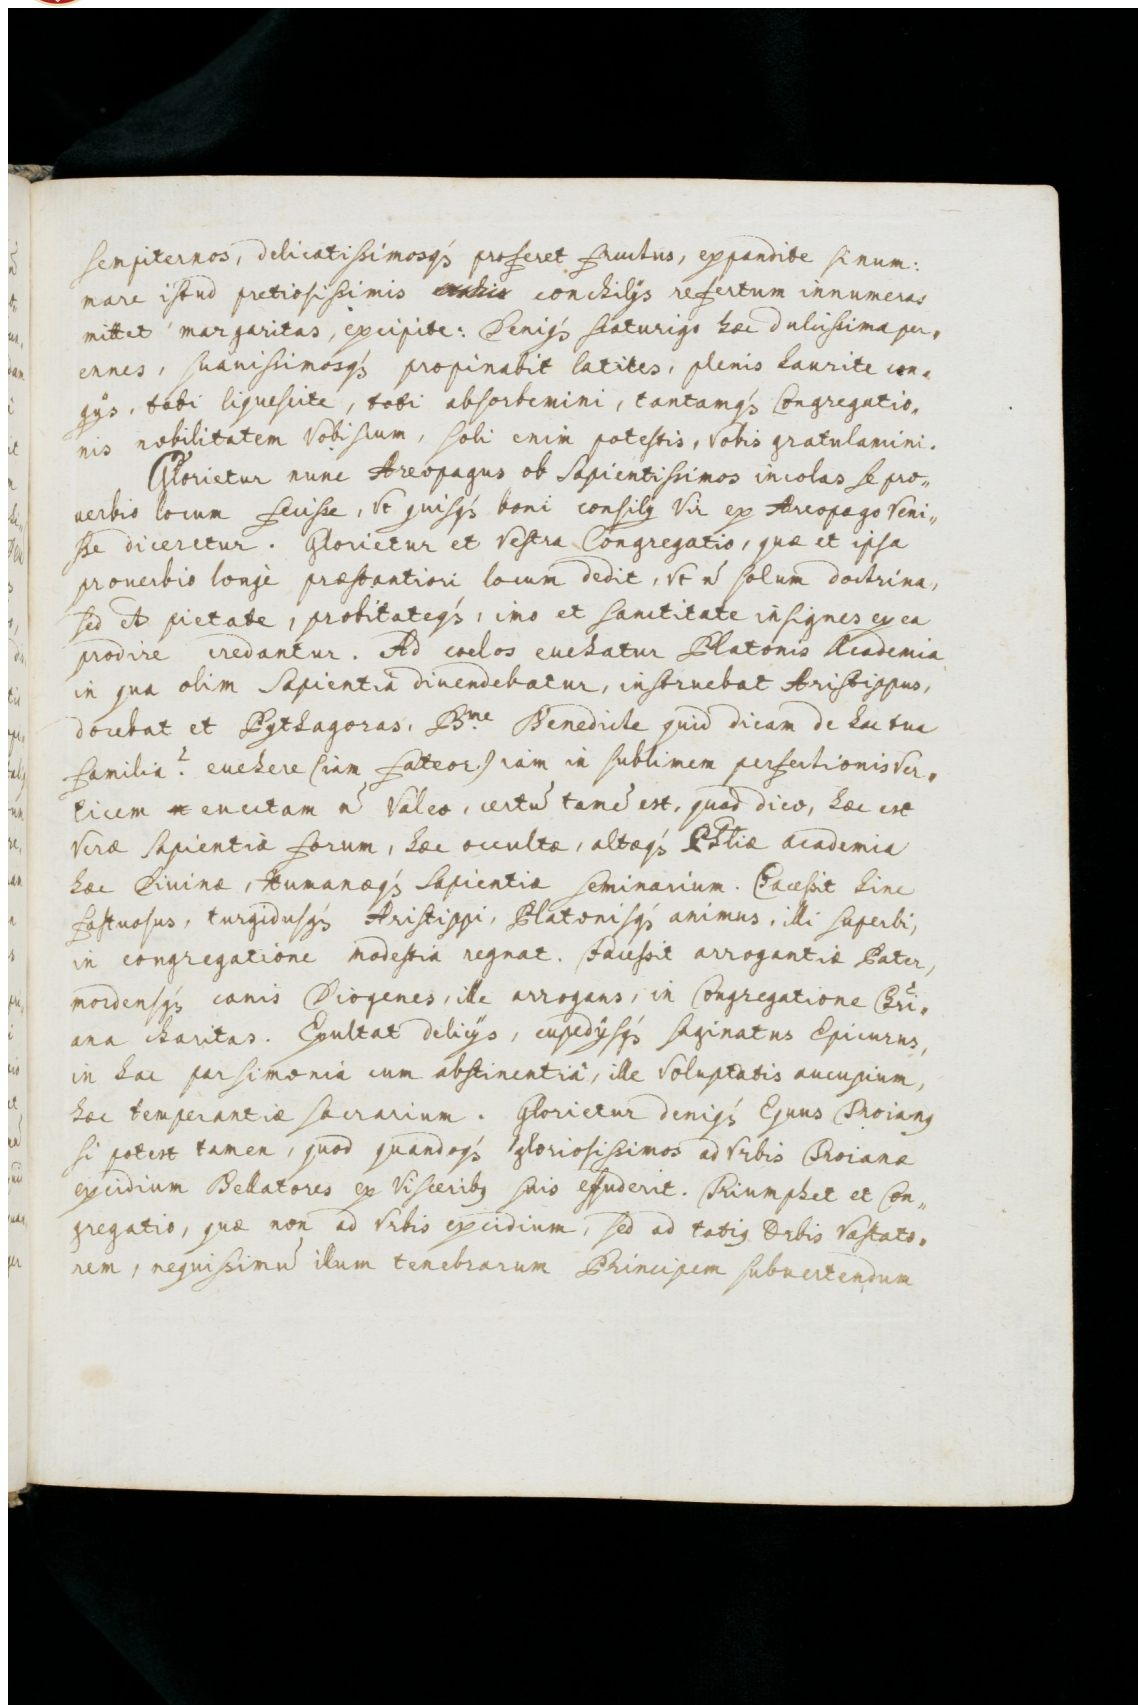 sempiternos, delicatissimosq́s proferet fructus, expandite sinum:
mare istud pretiosissimis conchilÿs refertum innumeras
mittet margaritas, excipite: Deniq́s scaturigo hæc dulcissima per„
ennes, suauissimosq́s propinabit latices, plenis haurite con„
gÿs, toti liquescite, toti absorbemini, tantamq́s Congregatio„
nis nobilitatem Vobiscum, soli enim potestis, Vobis gratulamini.
Glorietur nunc Areopagus ob Sapientissimos incolas se pro„
uerbio locum fecisse, vt quisq́s boni consilÿ Vir ex Areopago Veni„
sse diceretur. Glorietur et Vestra Congregatio, quæ et ipsa
prouerbio longè præstantiori locum dedit, vt ñ solum doctrina,
sed et pietate, probitateq́s, imo et sanctitate insignes ex ea
prodire credantur. Ad coelos euehatur Platonis Academia
in qua olim Sapientia diuendebatur, instruebat Aristippus,
docebat et Pythagoras. B.ne Benedicte quid dicam de hac tua
familia? euehere (iam fateor) iam in sublimem perfectionis Ver„
ticem euectam ñ Valeo, certũ tamẽ est, quod dico, hæc est
Veræ Sapientiæ forum, hæc occultæ, altæq́s Phliæ academia
hæc Diuinæ, Humanæq́s Sapientiæ seminarium. Facessit hinc
fastuosus, turgidusq́s Aristippi, Platonisq́s animus, illi superbi,
in congregatione modestia regnat. Facessit arrogantiæ Pater,
mordensq́s canis Diogenes, ille arrogans, in Congregatione Chri„
ana charitas. Exultat delicÿs, cupedÿsq́s saginatus Epicurus,
in hac parsimonia cum abstinentia, ille Voluptatis aucupium,
hæc temperantiæ sacrarium. Glorietur deniq́s Equus Troianꝯ
si potest tamen, quod quandoq́s gloriosissimos ad Vrbis Troianæ
excidium Bellatores ex Visceribꝯ suis effuderit. Triumphet et Con„
gregatio, quæ non ad Vrbis excidium, sed ad totiꝯ Orbis Vastato„
rem, nequissimũ illum tenebrarum Principem subuertendum